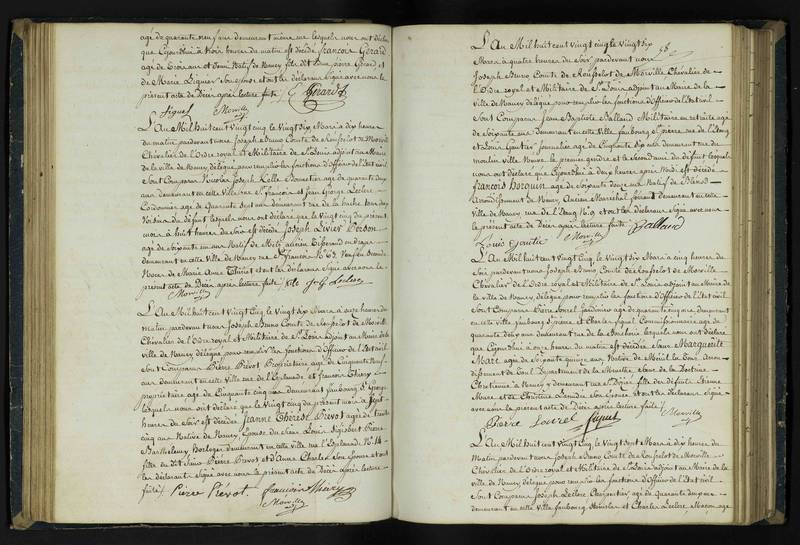 agé de quarante neuf ans demeurant même rue lesquels nous ont déclaré
que Cejourdhui à trois heures du matin est décédé françois Gérard
agé de trois ans et demi Natif de Nancy fils dit Jean pierre Gérard et
de Marie Liguier Son épouse et ont les déclarans Signé avec nous le
présent acte de Décès après lecture faite / G Gérard
Siguel Morville
L'An Mil huit cent vingt cinq, le Vingt six Mars à dix heures
du matin, pardevant nous Joseph Bruno Comte de Rousselot de Morville
Chevalier de L'Ordre royal et Militaire de St Louis adjoint au Maire
de la ville de Nancy délégué pour remplir les fonctions d'Officier de l'Etat civil
Sont Comparus Nicolas Joseph Kelle Bonnetier agé de quarante deux
ans demeurant en cette Ville rue St françois et Jean George Leclerc
Cordonnier agé de quarante sept ans demeurant rue de la hache tous deux
Voisins du défunt lesquels nous ont déclaré que le vingt cinq du présent
mois à huit heures du Soir est décédé Joseph Livier Dordon
agé de soixante un ans Natif de Metz ancien Tisserand
demeurant en cette Ville de Nancy rue St françois No 63. Veuf en Seconde
Noces de Marie Anne Thiriet et ont les déclarans Signé avec nous le
présent acte de Décès après lecture faite / Kelle J. G Leclerc
Morville
L'An Mil huit cent Vingt Cinq le Vingt Six Mars à onze heures du
Matin pardevant nous Joseph Bruno Comte de Rousselot de Morville
Chevalier de L'Ordre royal et Militaire de St Louis adjoint au Maire de la
ville de Nancy délégué pour remplir les fonctions d'Officier de l'Etat civil
Sont Comparus Pierre Prevot Propriétaire agé de Cinquante Neuf
ans demeurant en cette Ville rue de l'Esplanade et françois Thiery
propriétaire agé de Cinquante Cinq ans demeurant faubourg St George
lesquels nous ont déclaré que le Vingt cinq du présent mois à Sept
heures du Soir est décédée Jeanne Thérèse Prevot agée de trente
cinq ans Native de Nancy Epouse du Sieur Louis Sigisbert Pierre
Barthelemy Horloger demeurant en cette Ville rue l'Esplanade No 14
fille du dit Sieur Pierre Prevot et d'Anne Charles Son Epouse et ont
les déclarans Signé avec nous le présent acte de Décès après lecture
faite / Pierre Prevot. françois thiery
Morville
58
L'An Mil huit cent Vingt cinq le Vingt Six
Mars à quatre heures du Soir pardevant nous
Joseph Bruno Comte de Rousselot de Morville Chevalier de
L'Ordre royal et Militaire de St Louis adjoint au Maire de la
ville de Nancy délégué pour remplir les fonctions d'Officier de l'Etat civil
Sont Comparus Jean Baptiste Galland Militaire en retraite agé
de Soixante ans demeurant en cette Ville faubourg St pierre rue de l'Etang
et Louis Gautier journalier agé de Cinquante six ans demeurant rue du
moulin Ville Neuve le premier gendre et le Second ami du défunt lesquels
nous ont déclaré que Cejourdhui à deux heures après Midi est décédé
françois Horquin agé de Soixante douze ans Natif de
arrondissement de Nancy, Ancien Maréchal ferrant demeurant en cette
Ville de Nancy rue de l'Etang No 9 et ont les déclarans Signé avec nous
le présent acte de Décès après lecture faite / Galland
Louis Gautie Morville
L'An Mil huit cent Vingt Cinq, le Vingt Six Mars à cinq heures du
Soir pardevant nous Joseph Bruno Comte de Rousselot de Morville
Chevalier de L'Ordre royal et Militaire de St Louis adjoint au Maire de
la ville de Nancy délégué pour remplir les fonctions d'Officier de l'Etat civil
Sont Comparus Pierre Louvel Jardinier agé de quarante cinq ans demeurant
en cette Ville faubourg St pierre et Charles Siguel Commissionnaire agé de
quarante deux ans demeurant rue de la lesquels nous ont déclaré
que Cejourdhui à onze heures du matin est décédée Sœur Marguerite
Marc agée de Soixante quinze ans Native de Ménil la Tour arron-
dissement de Toul Département de la Meurthe, Sœur de la Doctrine
Chrétienne à Nancy y demeurant rue St Dizier fille des défunts Etienne
Marc et de Christine Son Epouse et ont les déclarans Signé
avec nous le présent acte de Décès après lecture faite /
Pierre Louvel Siguel Morville
L'An Mil huit cent Vingt Cinq le Vingt Sept Mars à dix heures du
Matin pardevant nous Joseph Bruno Comte de Rousselot de Morville
Chevalier de L'Ordre royal et Militaire de St Louis adjoint au Maire de la
ville de Nancy délégué pour remplir les fonctions d'Officier de l'Etat civil
Sont Comparus Joseph Leclerc Charpentier agé de quarante cinq ans
demeurant en cette Ville faubourg et Charles Leclerc Maçon agé